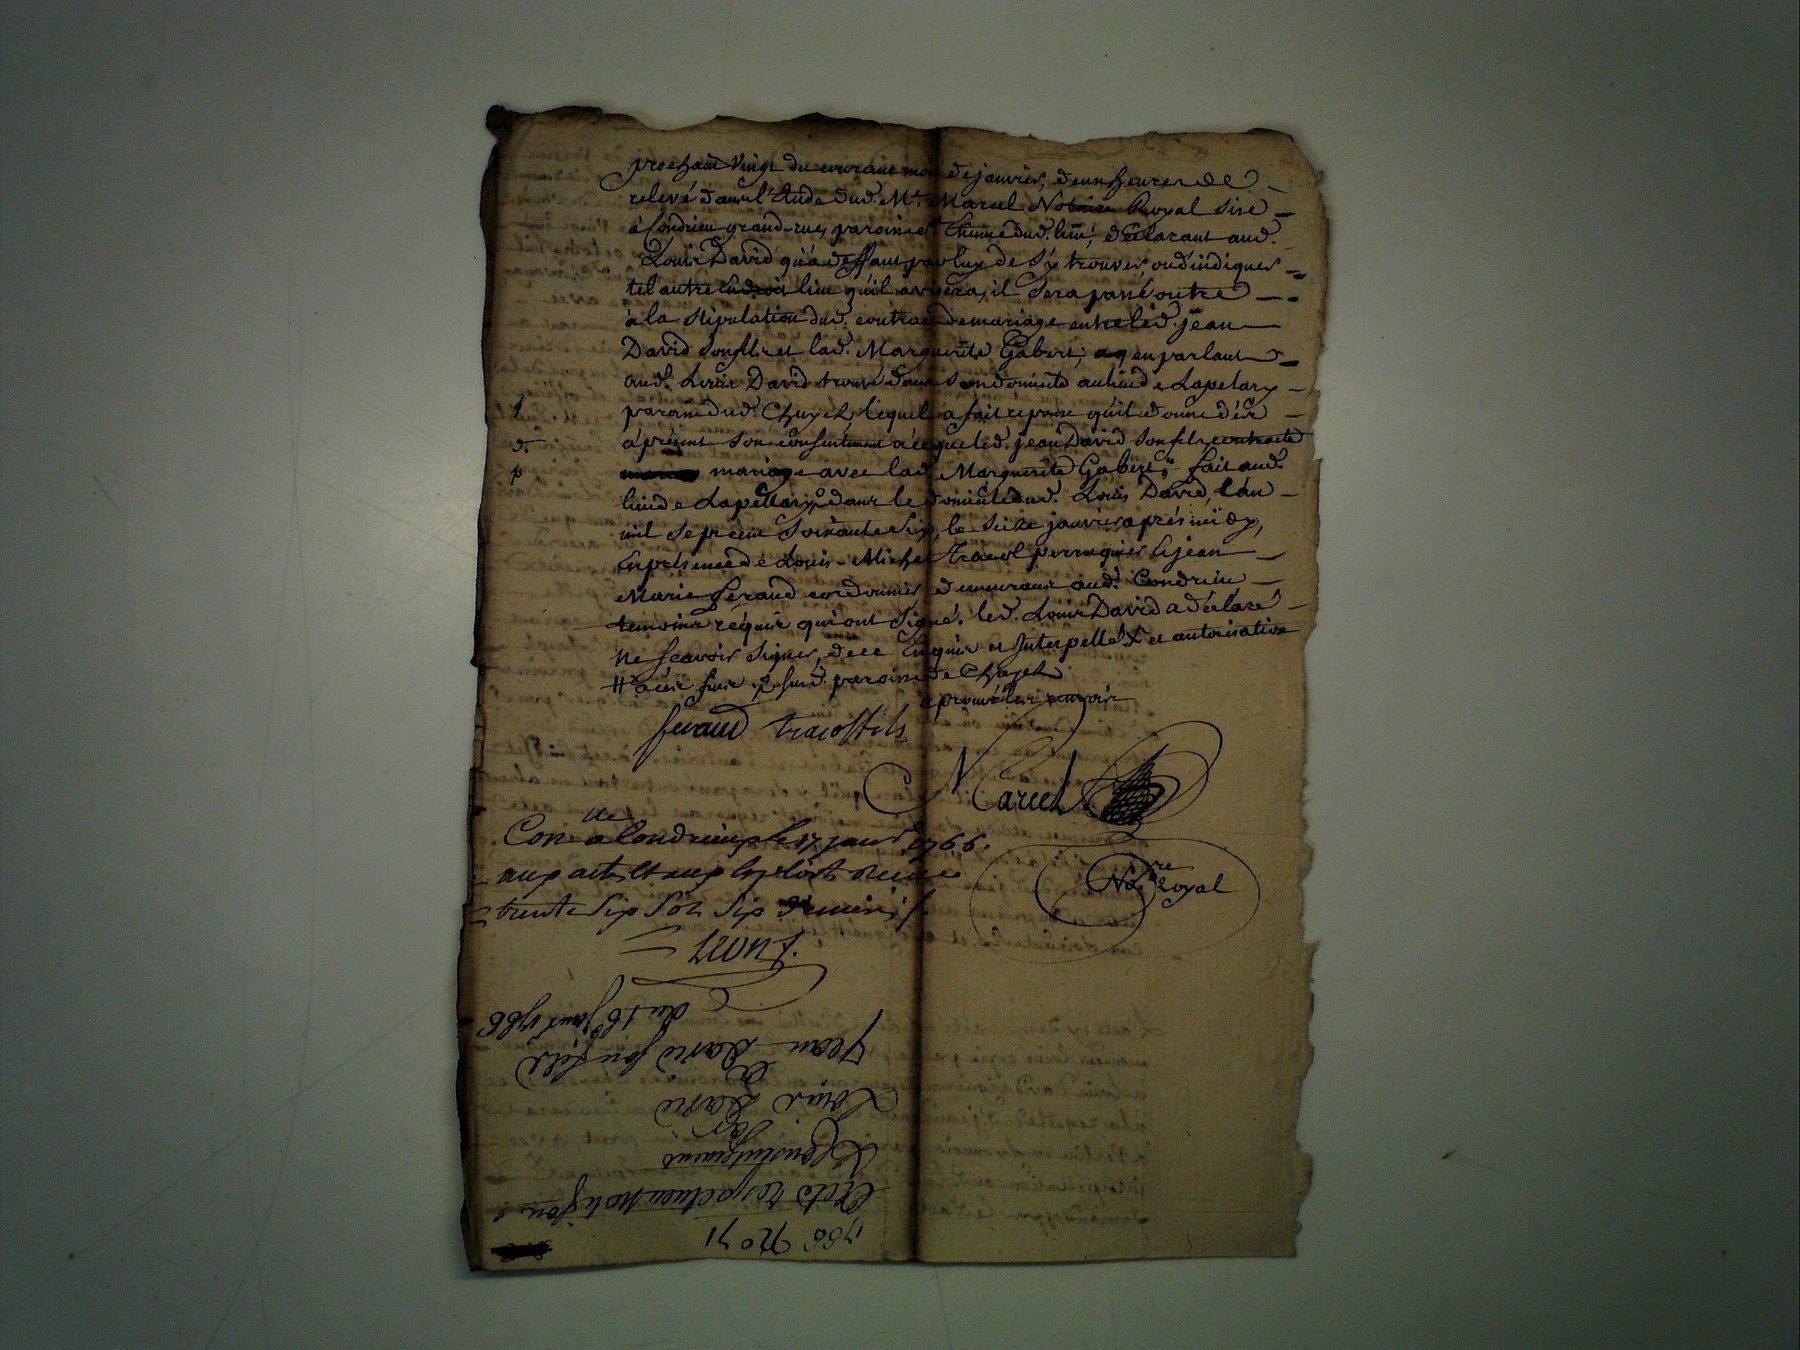 prochain vingt du courant mois de janvier, deux heures de
relevé dans l'Etude dud. Me. Marcel Notaire Royal sise
à Condrieu grand-rue, paroisse dud. lieu, déclarant aud.
Louis David qu'à deffaut par luy de s'y trouver, ou d'indiquer
tel autre endroit lieu qu'il avisera, il sera passé outre
à la stipulation dud. contract de mariage entre led. jean
David son fils et lad. Marguerite Gabert; en parlant
aud. Louis David trouvé dans son domicile au lieu de Lapelary
paroisse dud. Chuyer, lequel a fait réponse qu'il donne dès
à présent son consentement à ce que led. jean David son fils contracte
mariage avec lad. Marguerite Gabert; fait aud.
lieu de Lapellary, dans le domicile dud. Louis David, l'an
mil sept cent soixante six, le seize janvier après midy,
en présence de Louis-Michel Tracol perruquier & jean
Marie feraud cordonnier demeurant aud. Condrieu
temoins réquis qui ont signé. led. Louis David a déclaré
ne scavoir signer, de ce enquis et interpellé et autorisation
à ces fins sud. paroisse de Chuyer
aprouvé les renvois
feraud tracol fils
Marcel
Nore. Royal
Conlle a Condrieu le 17 janr 1766.
aux actes et aux exploits
trente six sols six deniers
1766 No 71
Acte respectueux
Consentement
Par
Louis David
à
Jean David son fils
du 16 janr 1766